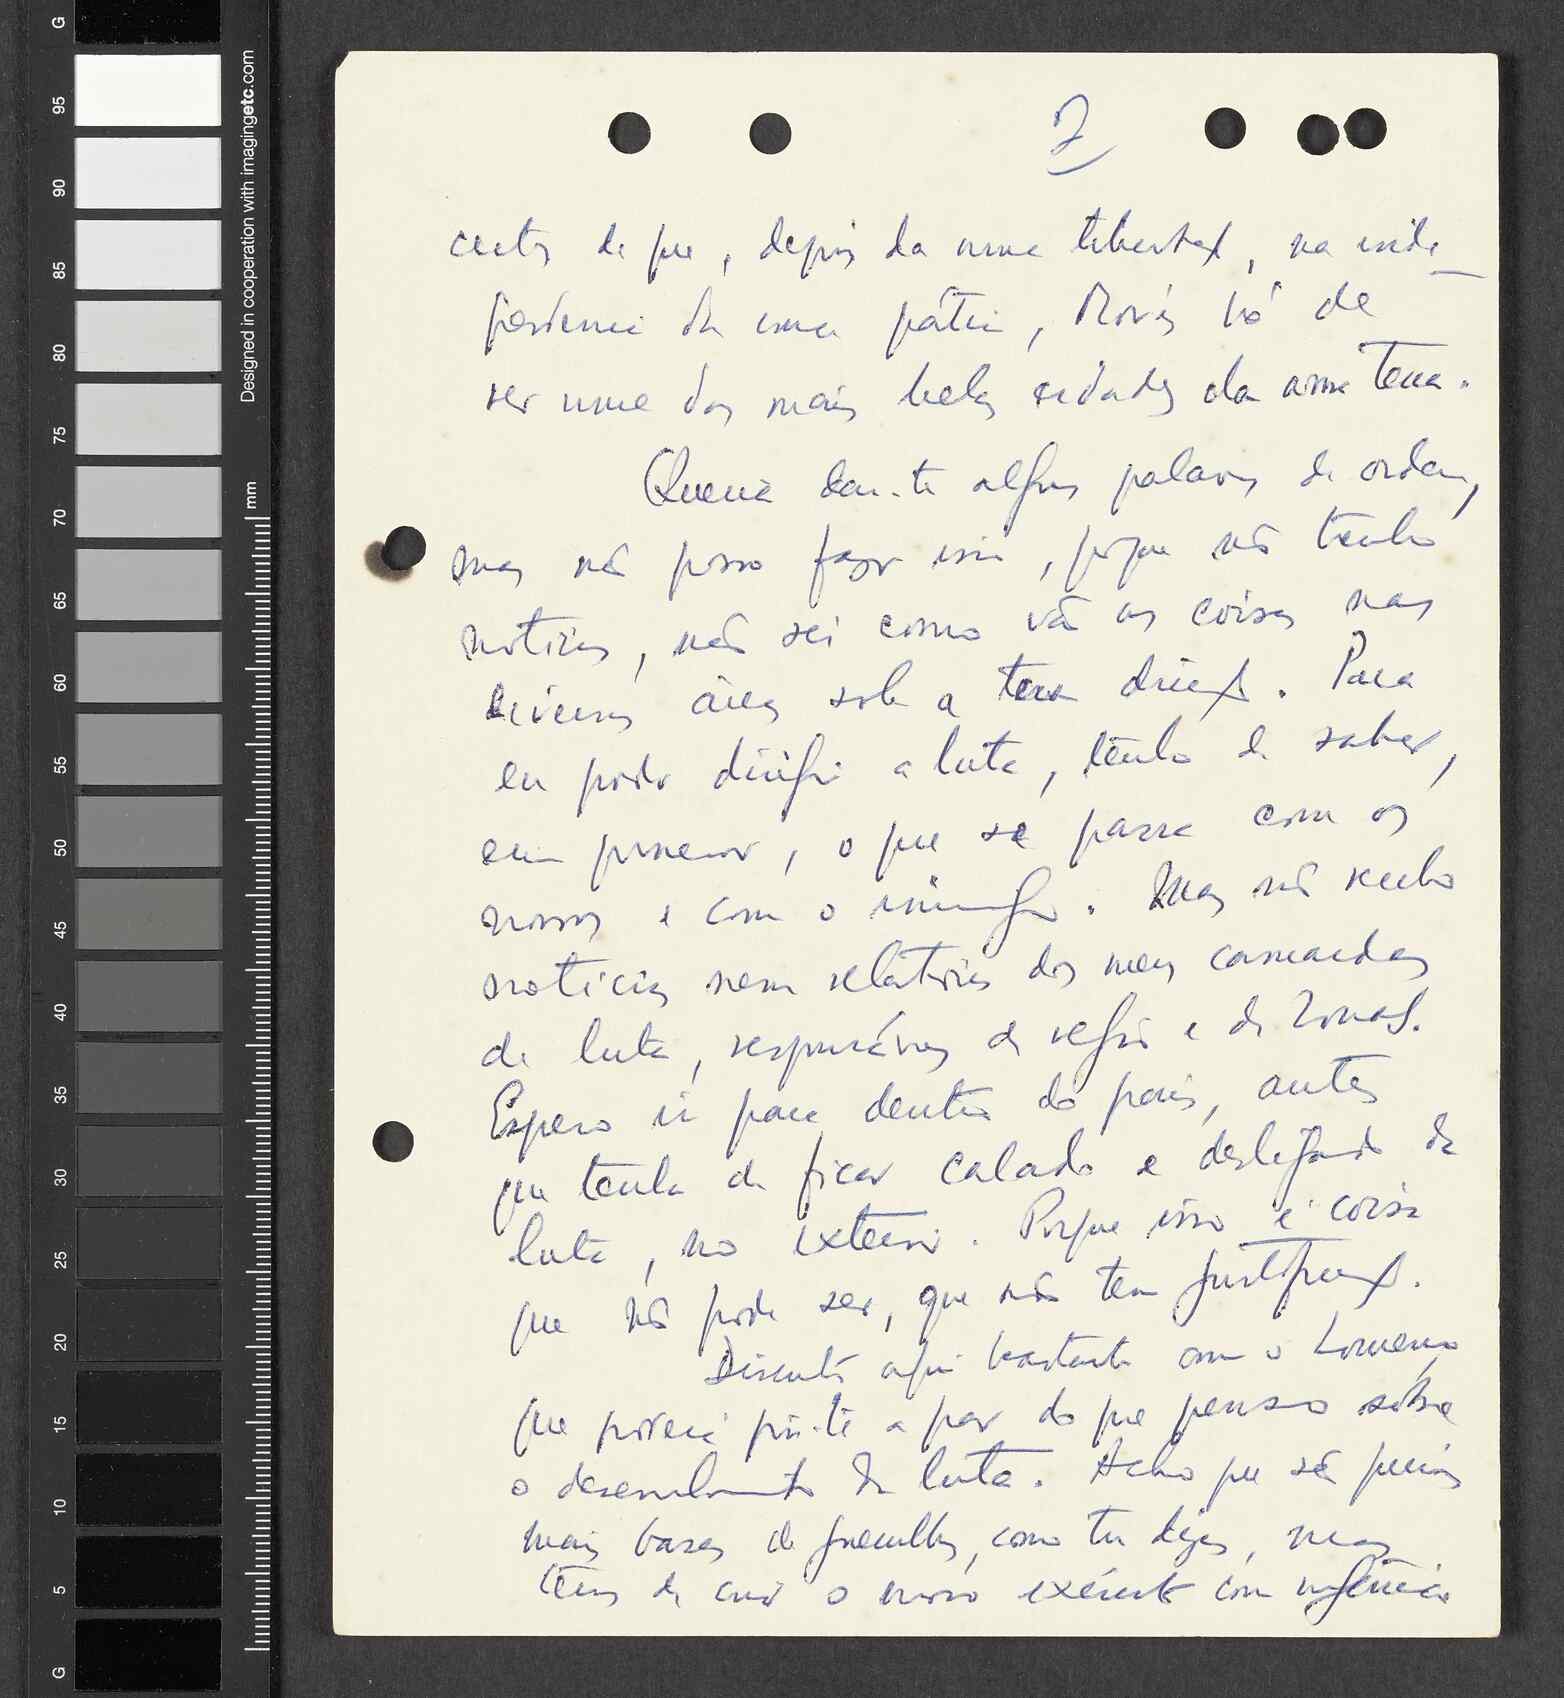 2
certos de que, depois da nossa libertação, na inde-
pendencia da nossa pátria, Morés há de
ser uma das mais belas cidades da nossa terra.
Queria dar-te algumas palavras de ordem,
mas não posso fazer isso, porque não tenho
noticias, não sei como vão as coisas nas
diversas áreas sob a tua direcção. Para
eu poder dirigir a luta, tenho de saber,
em pormenor, o que se passa com os
nossos e com o inimigo. Mas não recebo
noticias nem relatórios dos meus camaradas
de luta, responsáveis de região e de zonas.
Espero ir para dentro do país, antes
que tenha de ficar calado e desligado da
luta, no exterior. Porque isso é coisa
que não pode ser, que não tem justificação.
Discuti aqui bastante com o Lourenço
que poderá pôr-te a par do que penso sôbre
o desenvolvimento da luta. Acho que são precisas
mais bases de guerrilhas, como tu dizes, mas
temos de criar o nosso exército com urgência
G
95
90
85
80
75
70
65
60
55
50
45
40
35
30
25
20
15
10
5
G
Designed in cooperation with imagingetc.com
mm